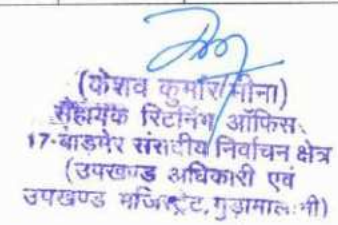 (केशव कुमार मीना)
सहायक रिटर्निंग ऑफिस
17-बाड़मेर संसदीय निर्वाचन क्षेत्र
(उपखण्ड अधिकारी एवं
उपखण्ड मजिस्ट्रेट, गुड़ामालानी)